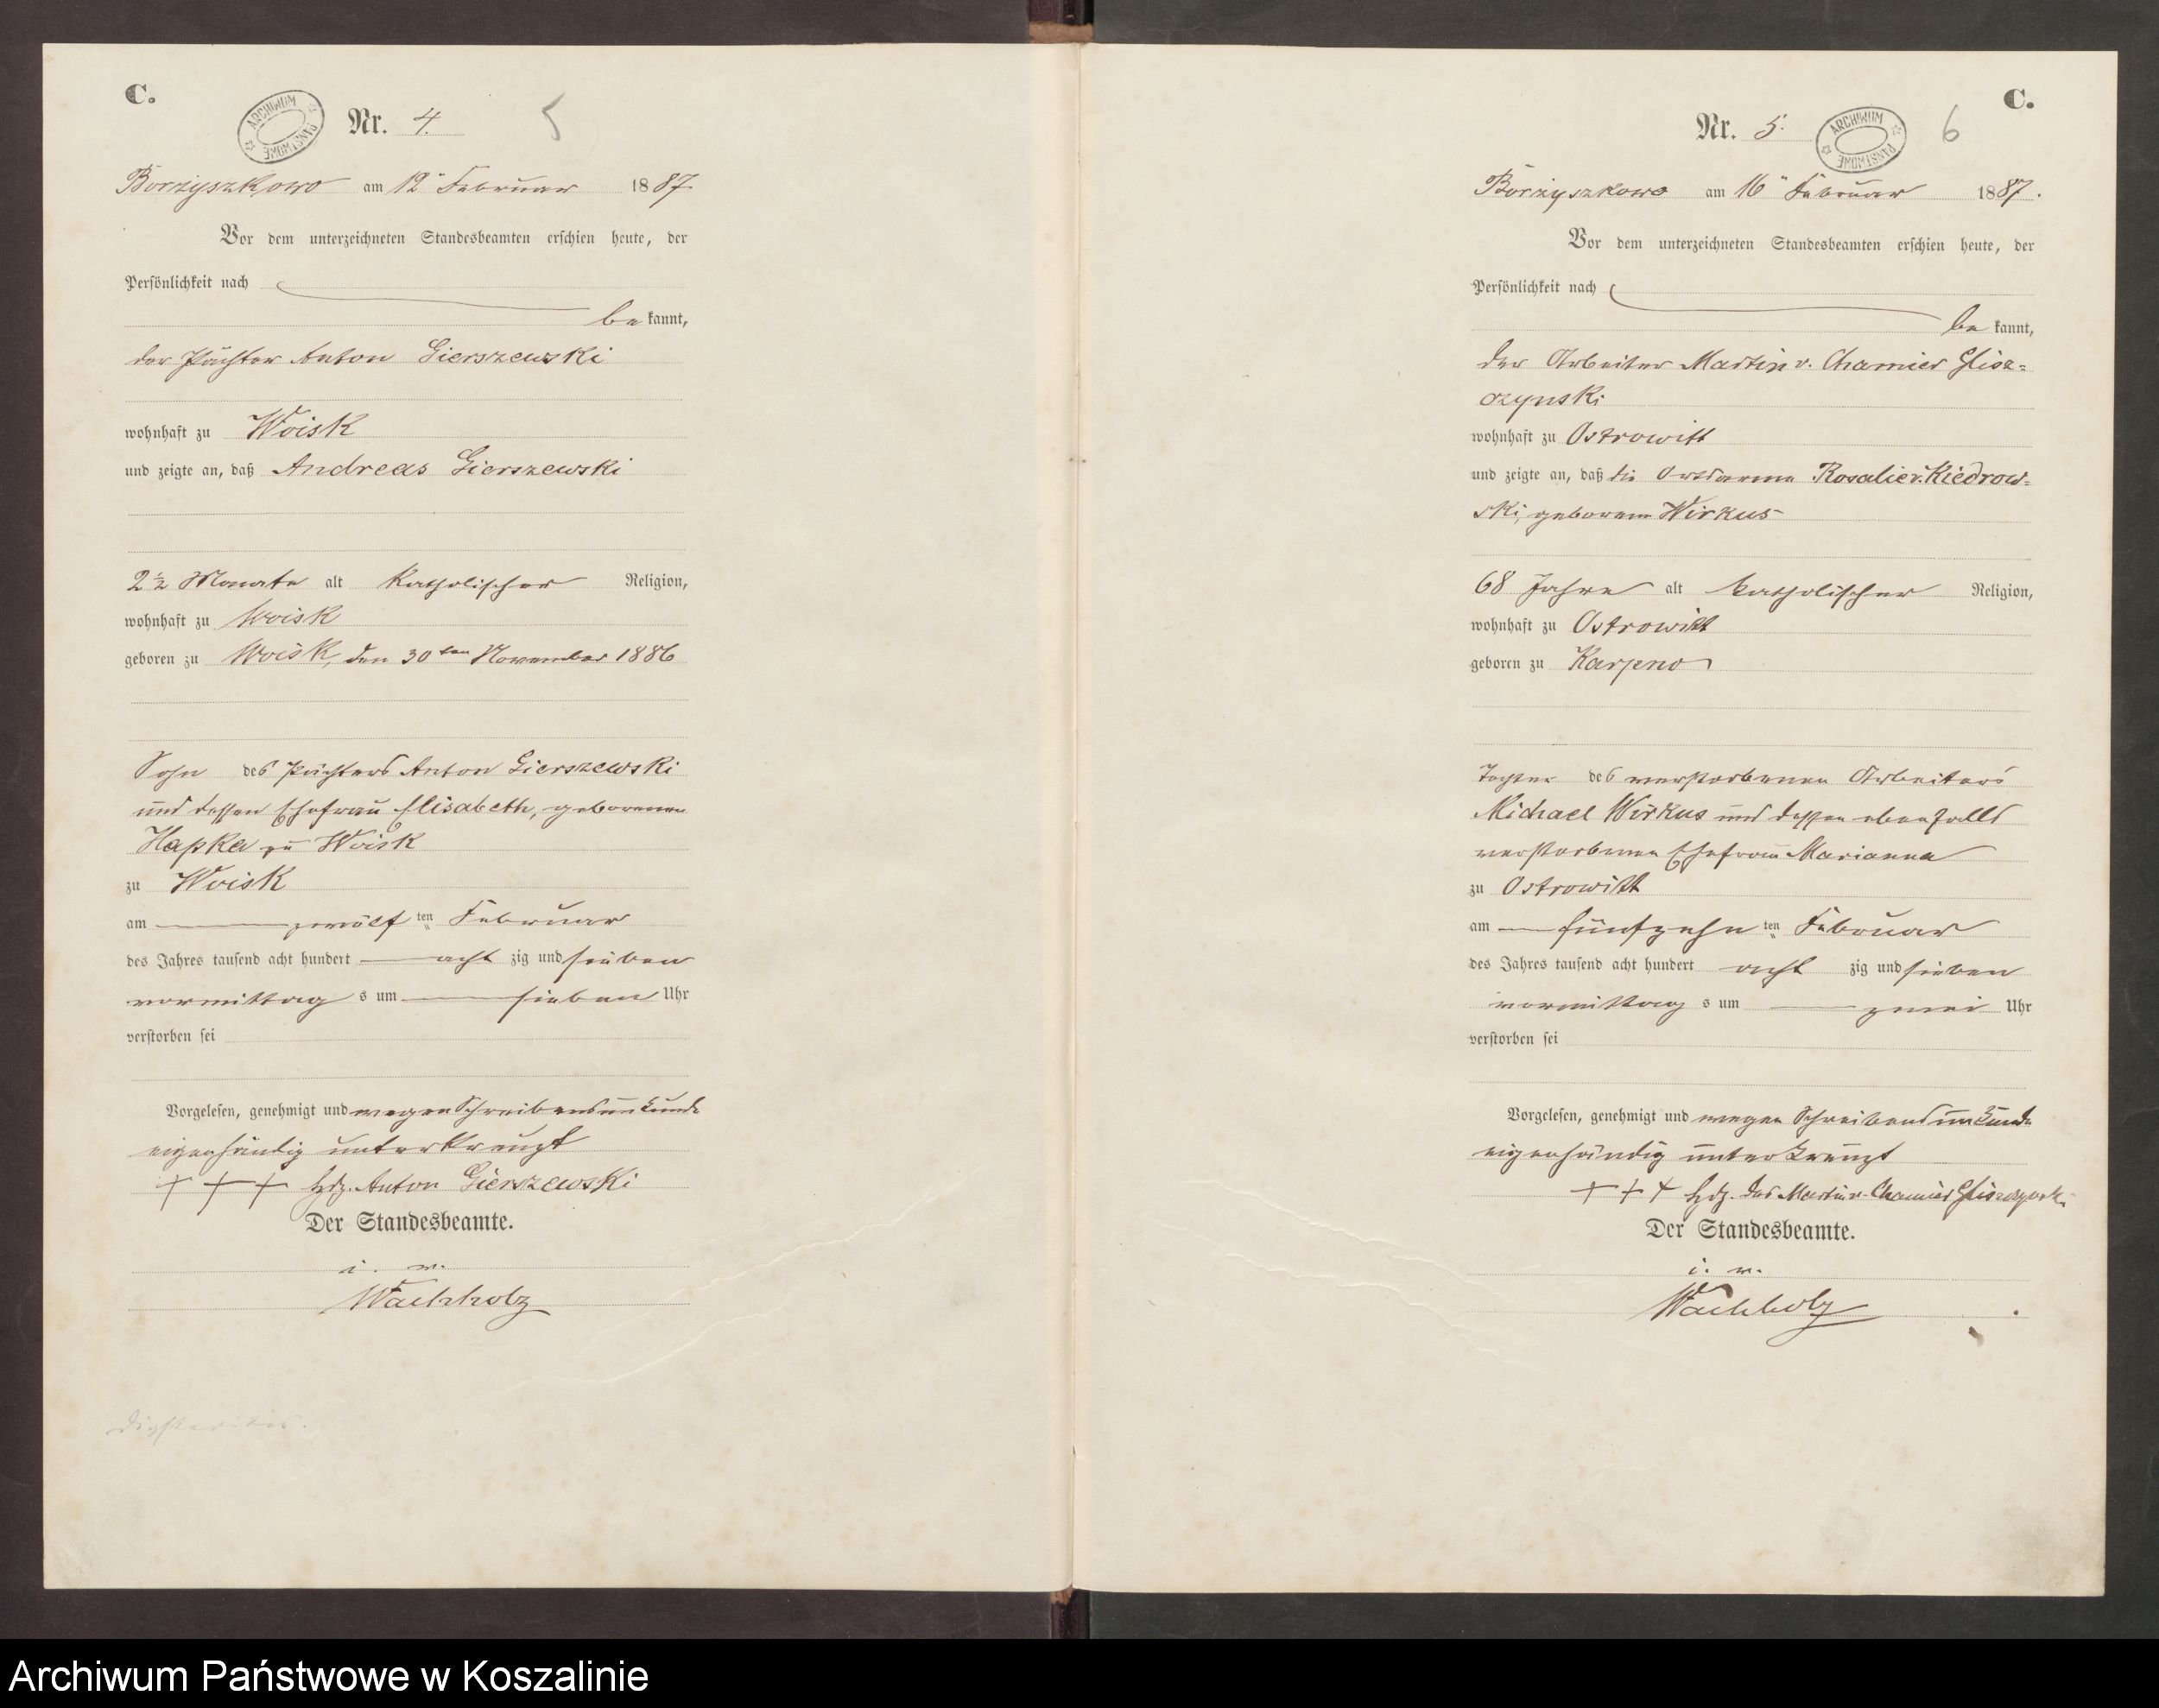 C.
ARCHIWUM PAŃSTWOWE
Nr. 4. 5
Borzyszkowo am 12" Februar 1887
Vor dem unterzeichneten Standesbeamten erschien heute, der
Persönlichkeit nach
be kannt,
der Pächter Anton Gierszewski
wohnhaft zu Woisk
und zeigte an, daß Andreas Gierszewski
2½ Monate alt katholischer Religion,
wohnhaft zu Woisk
geboren zu Woisk, den 30ten November 1886
Sohn des Pächters Anton Gierszewski
und dessen Ehefrau Elisabeth, geborenen
Hapka zu Woisk
zu Woisk
am zwölf ten Februar
des Jahres tausend acht hundert acht zig und sieben
vormittag s um sieben Uhr
verstorben sei
Vorgelesen, genehmigt und wegen Schreibensunkunde
eigenhändig unterkreuzt
+ + + Hdz. Anton Gierszewski
Der Standesbeamte.
i. v.
Wachholz
C.
Nr. 5. 6
ARCHIWUM PAŃSTWOWE
Borzyszkowo am 16" Februar 1887.
Vor dem unterzeichneten Standesbeamten erschien heute, der
Persönlichkeit nach
be kannt,
der Arbeiter Martin v. Chamier Glisz=
czynski
wohnhaft zu Ostrowitt
und zeigte an, daß die Ortsarme Rosalie v. Kiedrow=
ski, geborene Wirkus
68 Jahre alt katholischer Religion,
wohnhaft zu Ostrowitt
geboren zu Karpno
Tochter des verstorbenen Arbeiters
Michael Wirkus und dessen ebenfalls
verstorbenen Ehefrau Marianna
zu Ostrowitt
am fünfzehn ten Februar
des Jahres tausend acht hundert acht zig und sieben
vormittag s um zwei Uhr
verstorben sei
Vorgelesen, genehmigt und wegen Schreibensunkunde
eigenhändig unterkreuzt
+ + + Hdz. des Martin v. Chamier Gliszczynski
Der Standesbeamte.
i. v.
Wachholz
Archiwum Państwowe w Koszalinie